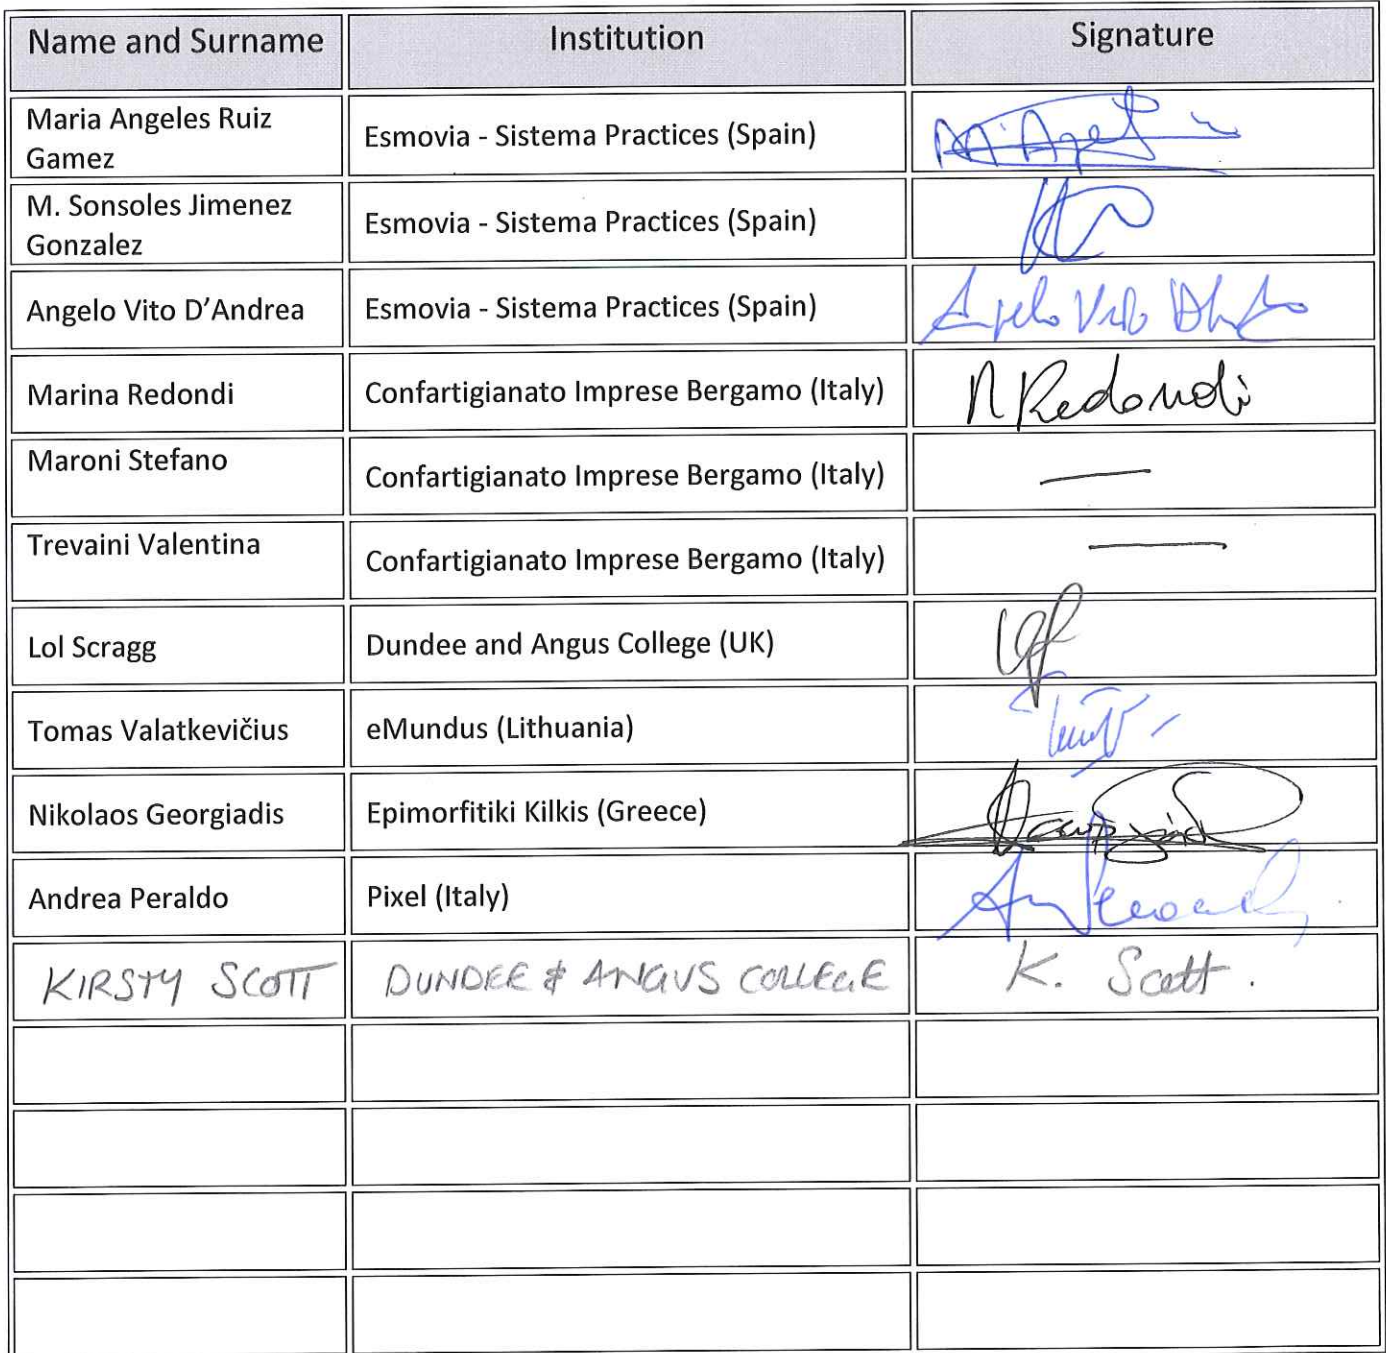 Name and Surname Institution Signature
Maria Angeles Ruiz
Gamez
Esmovia - Sistema Practices (Spain)
M. Sonsoles Jimenez
Gonzalez
Esmovia - Sistema Practices (Spain)
Angelo Vito D'Andrea Esmovia - Sistema Practices (Spain) Angelo Vito
Marina Redondi Confartigianato Imprese Bergamo (Italy) M Redondi
Maroni Stefano Confartigianato Imprese Bergamo (Italy) —
Trevaini Valentina Confartigianato Imprese Bergamo (Italy) —
Lol Scragg Dundee and Angus College (UK)
Tomas Valatkevičius eMundus (Lithuania)
Nikolaos Georgiadis Epimorfitiki Kilkis (Greece)
Andrea Peraldo Pixel (Italy)
KIRSTY SCOTT DUNDEE & ANGUS COLLEGE K. Scott.